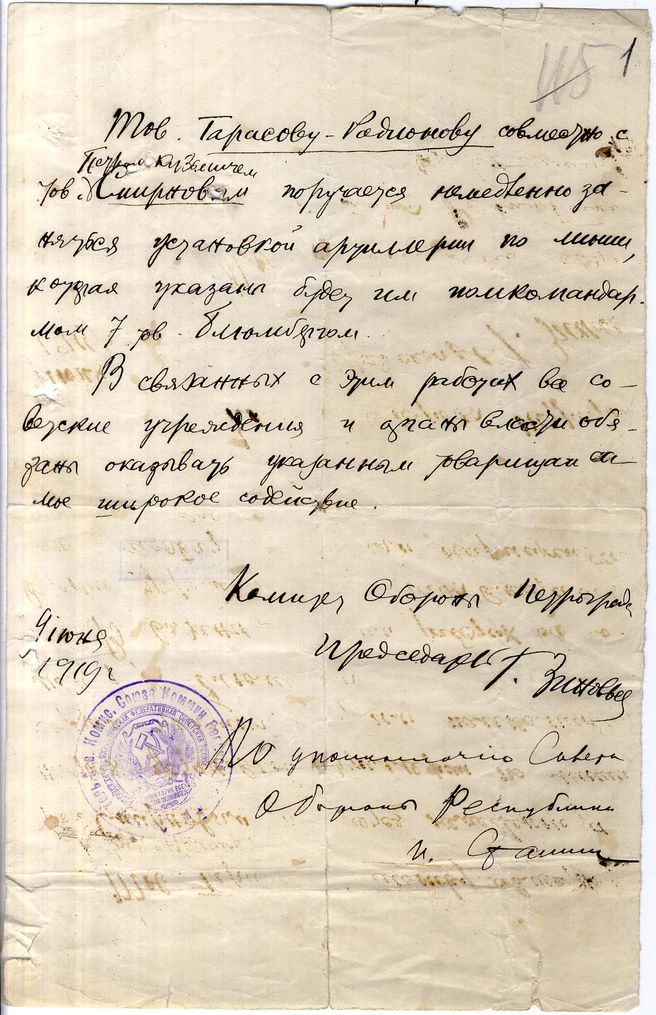 115 1
Тов. Тарасову-Родионову совместно с
Петром Кузьмичем
тов. Смирновым поручается немедленно за-
няться установкой артиллерии по линии,
которая указана будет им помкомандар-
мом 7 тов. Блюмбергом.
В связанных с этим работах все со-
ветские учреждения и органы власти обя-
заны оказывать указанным товарищам са-
мое широкое содействие.
Комитет Обороны Петрограда
9 июня
1919 г
Председатель Г. Зиновьев
По уполномочию Совета
Обороны Республики
И. Сталин
Комис. Союза Коммун